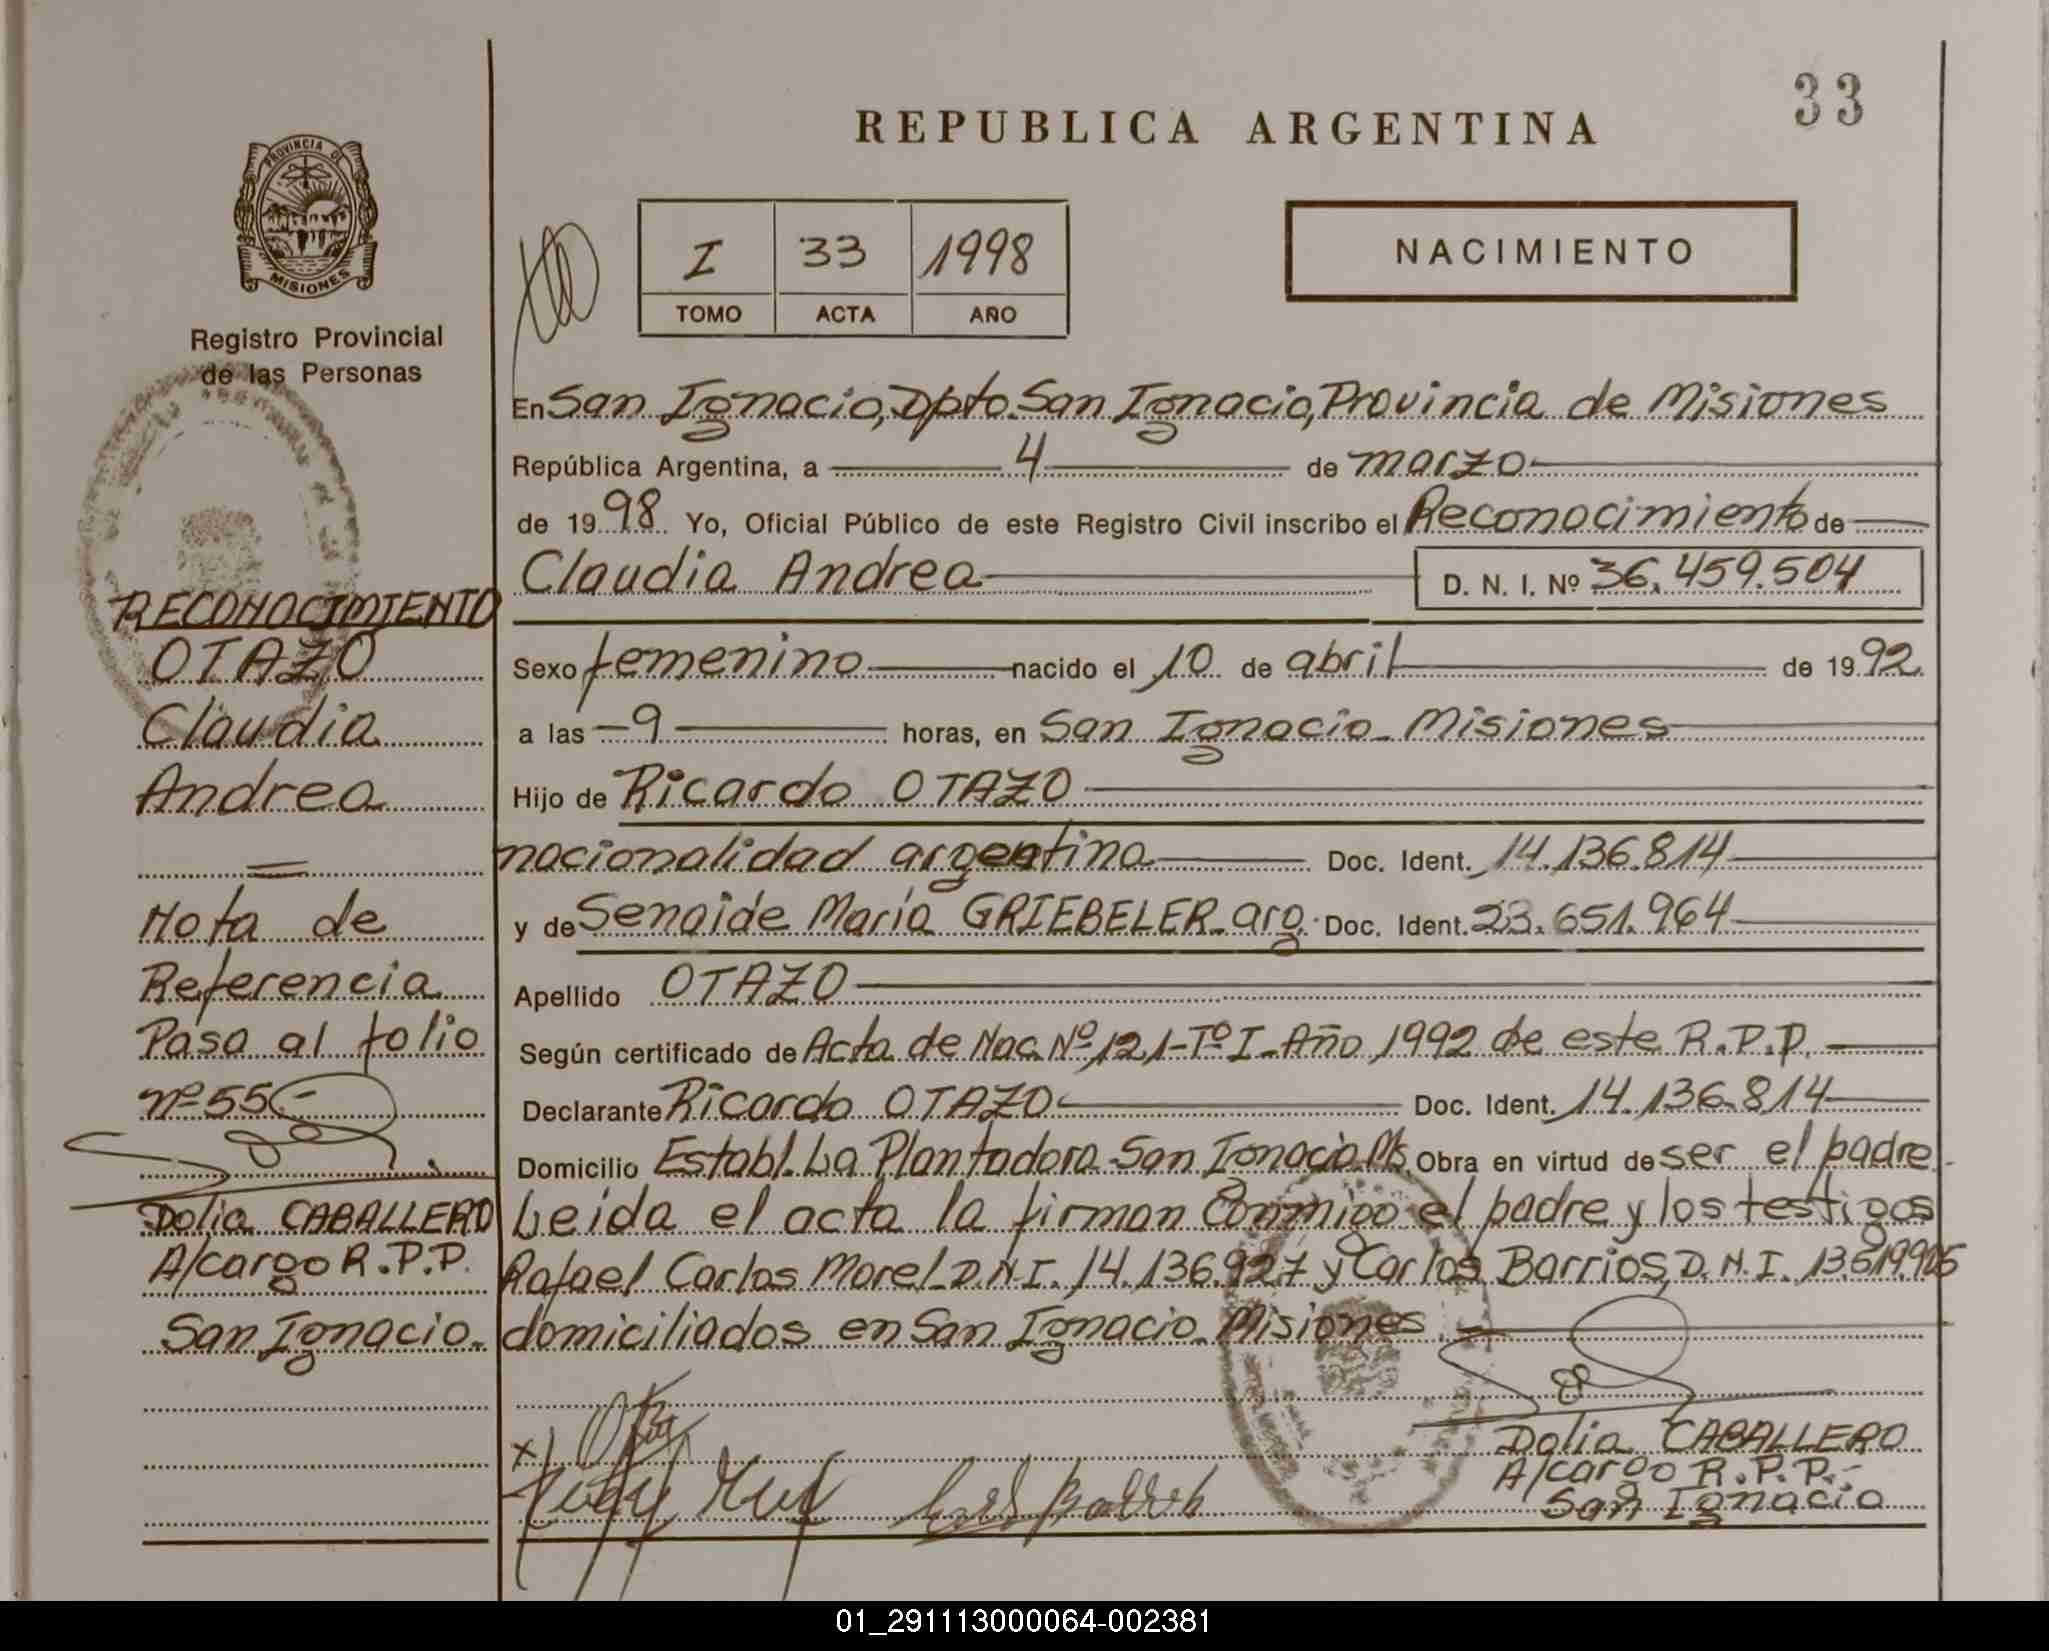 33
REPUBLICA ARGENTINA
PROVINCIA DE
MISIONES
Registro Provincial
de las Personas
I 33 1998
TOMO ACTA AÑO
NACIMIENTO
En San Ignacio, Dpto. San Ignacio, Provincia de Misiones
República Argentina, a 4 de marzo
de 1998 Yo, Oficial Público de este Registro Civil inscribo el Reconocimiento de
Claudia Andrea D. N. I. Nº 36.459.504
Sexo femenino nacido el 10 de abril de 1992
a las 9 horas, en San Ignacio - Misiones
Hijo de Ricardo OTAZO
nacionalidad argentina Doc. Ident. 14.136.814
y de Senaide María GRIEBELER - arg. Doc. Ident. 23.651.964
Apellido OTAZO
Según certificado de Acta de Nac. Nº 121 - Tº I - Año 1992 de este R.P.P.
Declarante Ricardo OTAZO Doc. Ident. 14.136.814
Domicilio Establ. La Plantadora - San Ignacio Obra en virtud de ser el padre
Leída el acta la firman conmigo el padre y los testigos
Rafael Carlos Morel - D.N.I. 14.136.927 y Carlos Barrios, D.N.I.
domiciliados en San Ignacio - Misiones
Dolia CABALLERO
A/cargo R.P.P.
San Ignacio
RECONOCIMIENTO
OTAZO
Claudia
Andrea
Nota de
Referencia
Pasa al folio
nº 55
Dolia CABALLERO
A/cargo R.P.P.
San Ignacio.
01_291113000064-002381